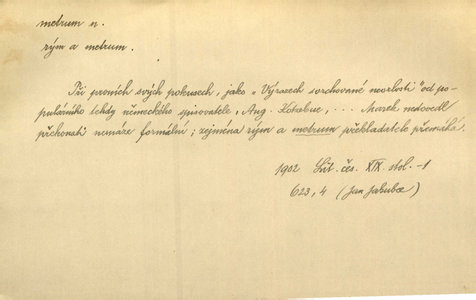 metrum n.
rým a metrum.
Při prvních svých pokusech, jako „Výrazech svrchované neovlosti" od po-
pulárního tehdy německého spisovatele, Aug. Kotzebue, ... Marek nedovedl
překonati nesnáze formální; zejména rým a metrum překladatele přemáhá.
1902 Lit. čes. XIX. stol. -1
623, 4 (Jan Jakubec)